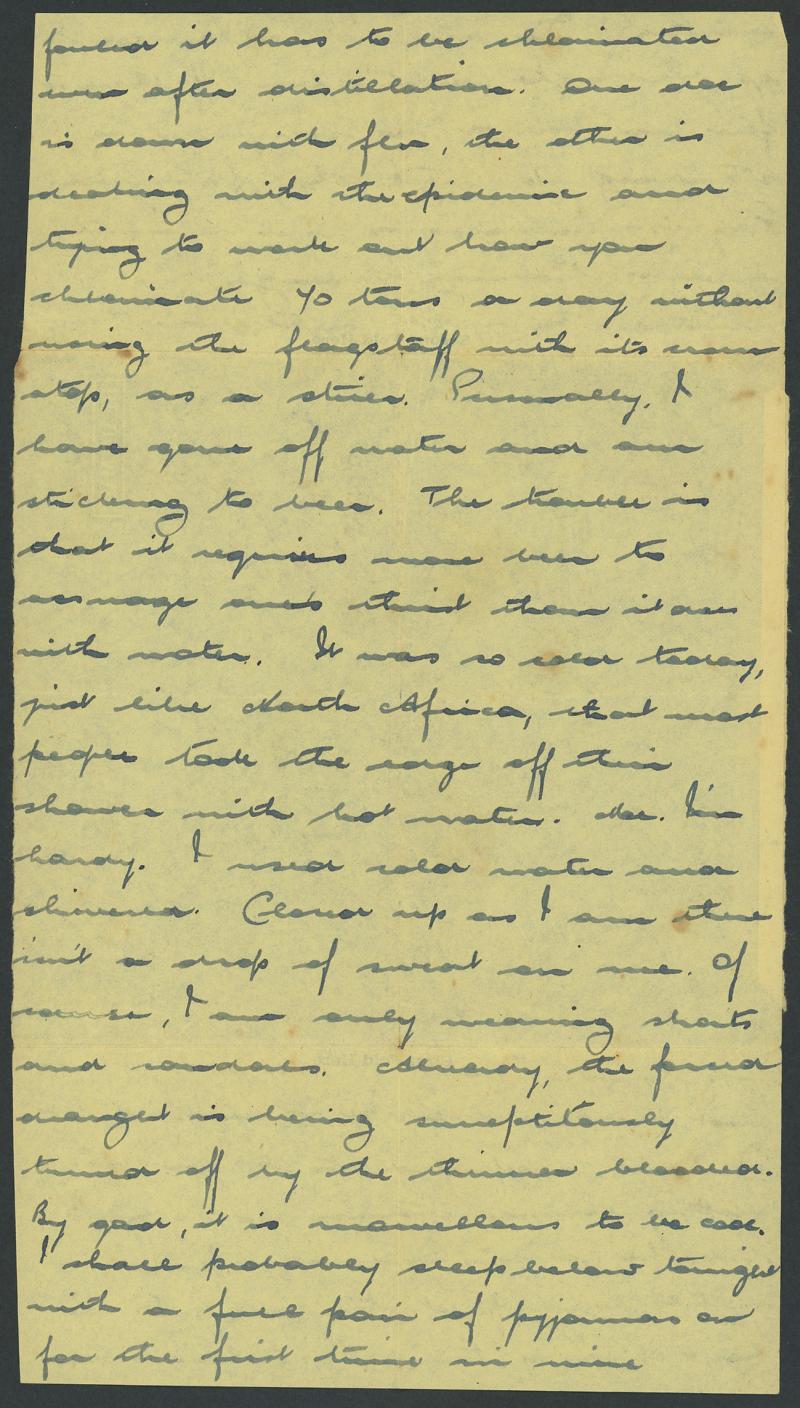 fouled it has to be chlorinated
even after distillation. One doc
is down with flu, the other is
dealing with the epidemic and
trying to work out how you
chlorinate 70 tons a day without
using the flagstaff with its
step, as a stirrer. Personally, I
have gone off water and am
sticking to beer. The trouble is
that it requires more beer to
assuage one's thirst than it does
with water. It was so cold today,
just like North Africa, that most
people took the edge off their
shower with hot water. Me. I'm
hardy. I used cold water and
shivered. Closed up as I am there
isn't a drop of sweat on me. Of
course, I am only wearing shorts
and sandals. Already, the forced
draught is being surreptitously
turned off by the thinner blooded.
By gad, it is marvellous to be cool.
I shall probably sleep below tonight
with a full pair of pyjamas on
for the first time in nine